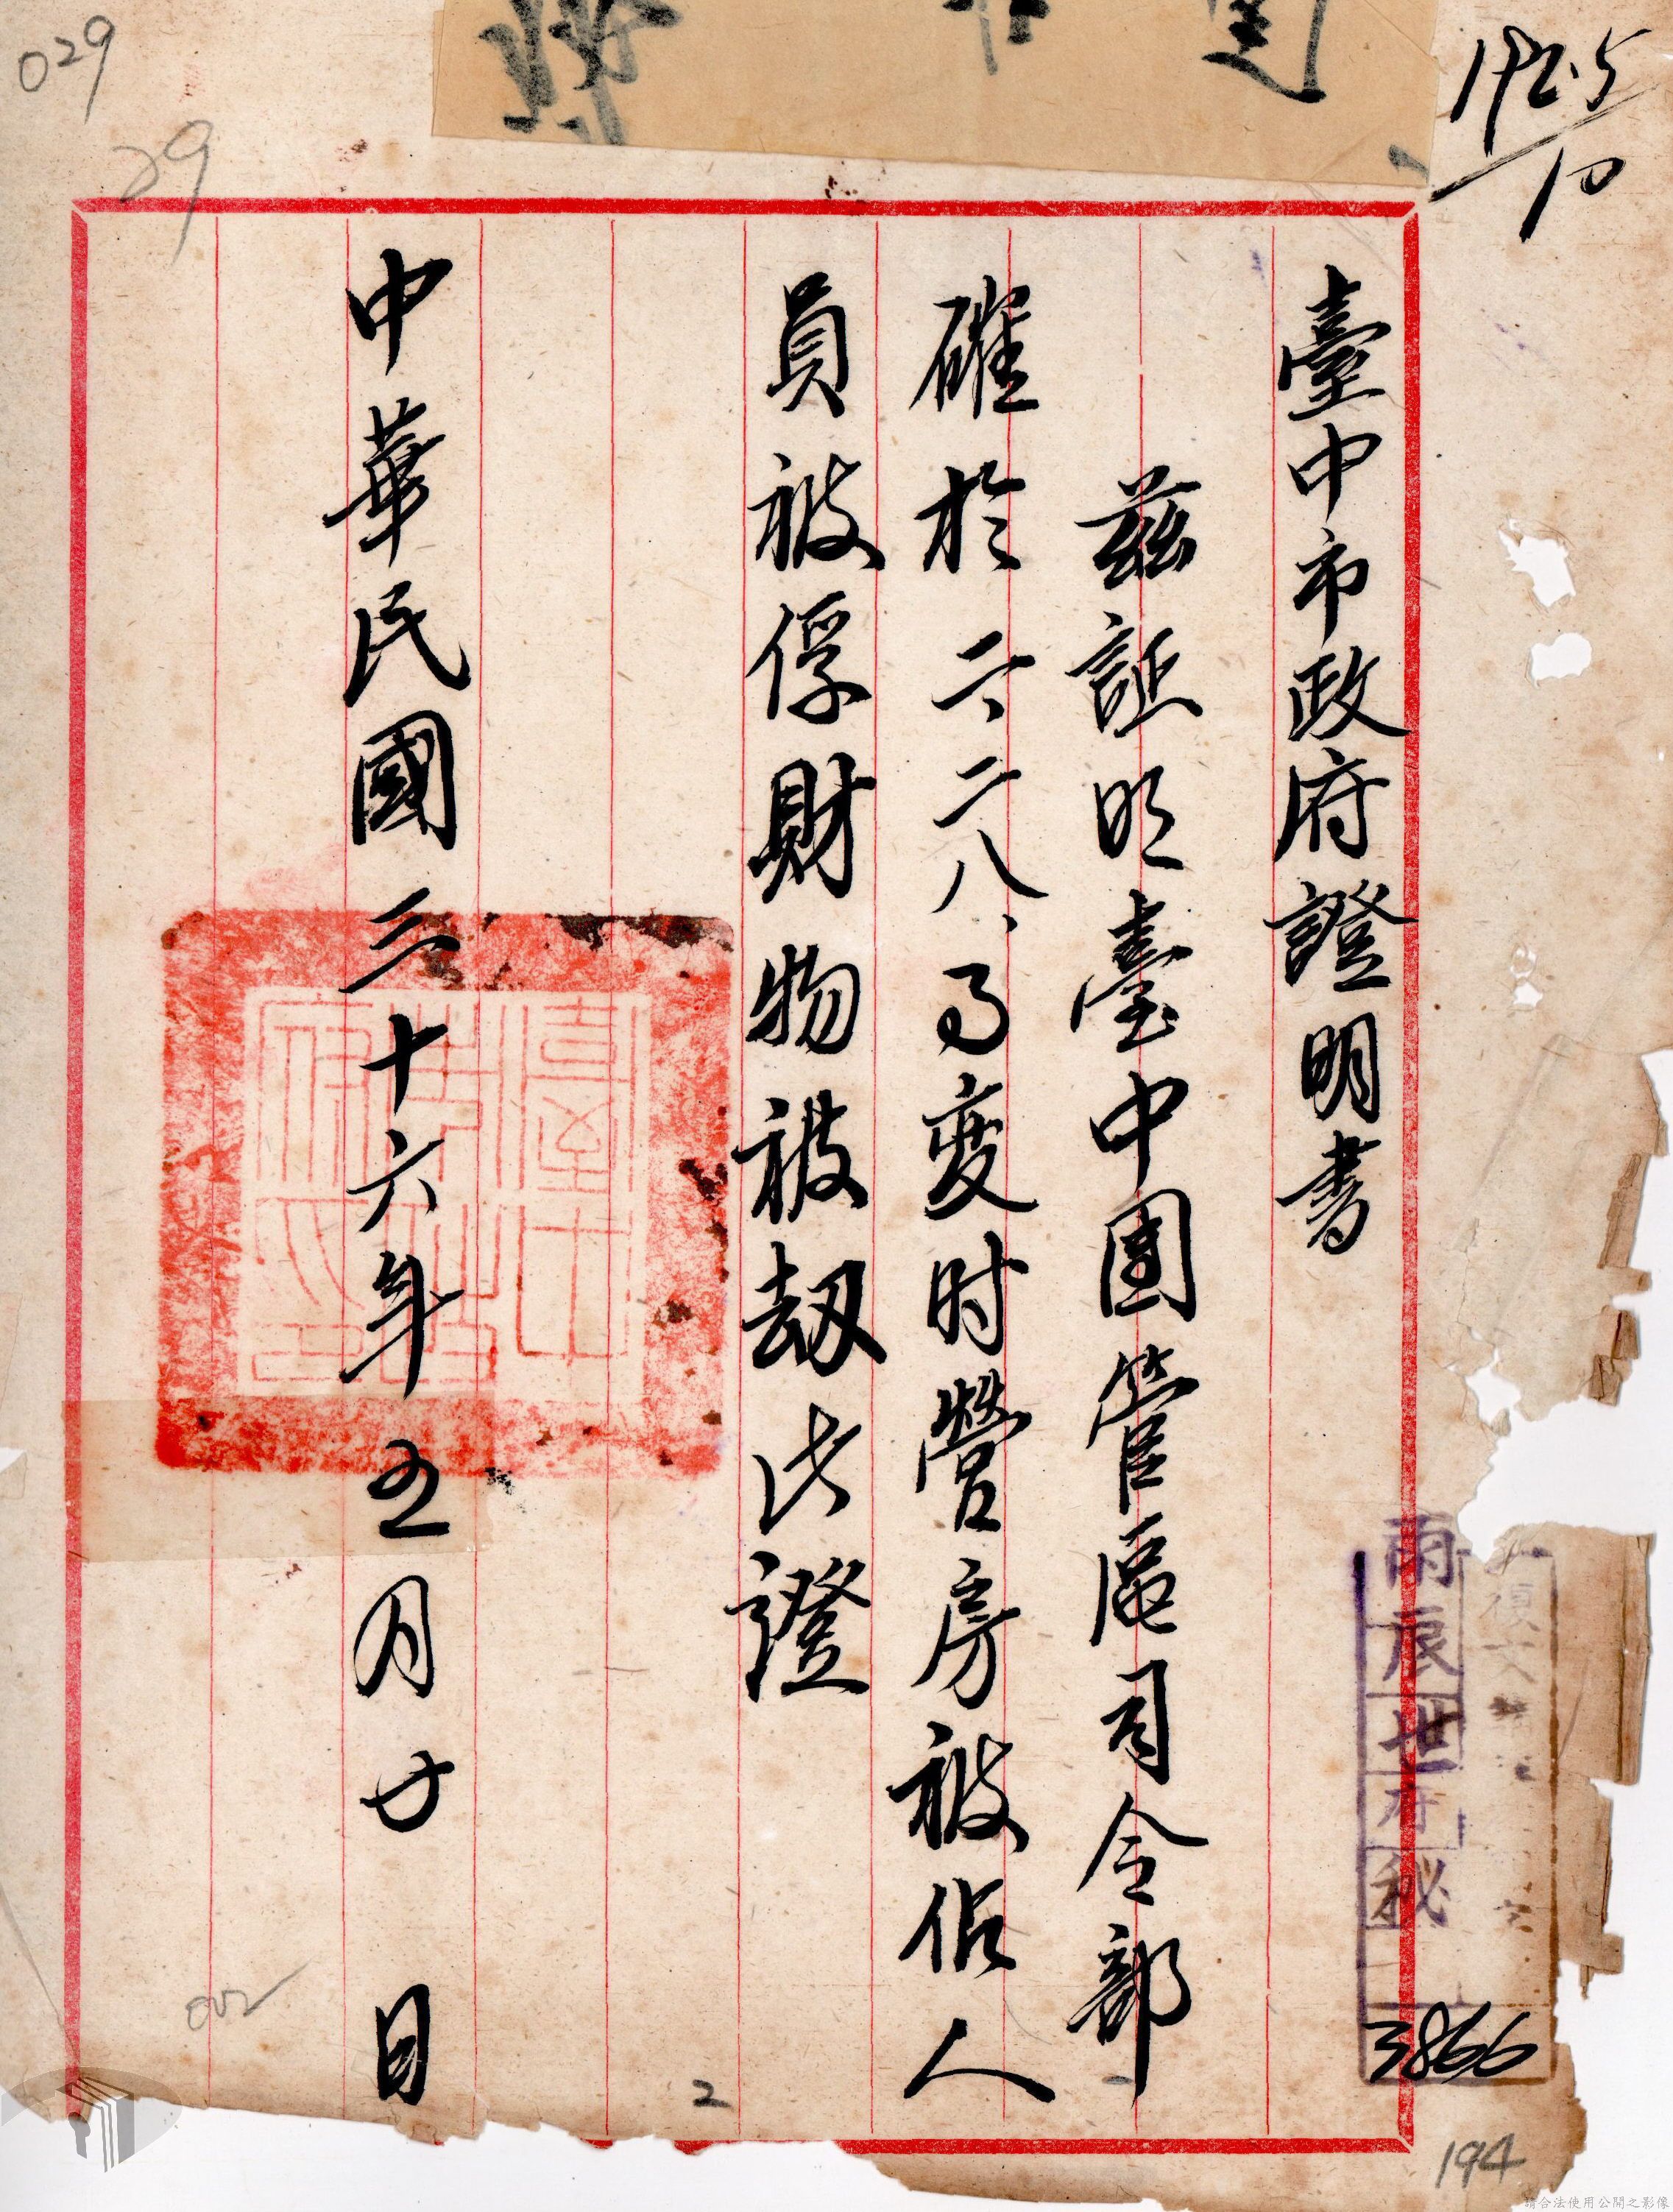 臺中市政府證明書
茲証明臺中團管區司令部
確於二、二八、事变时營房被佔人
員被俘財物被刼此證
中華民國三十六年五月廿日
029
29
194
3866
002
2
請合法使用公開之影像